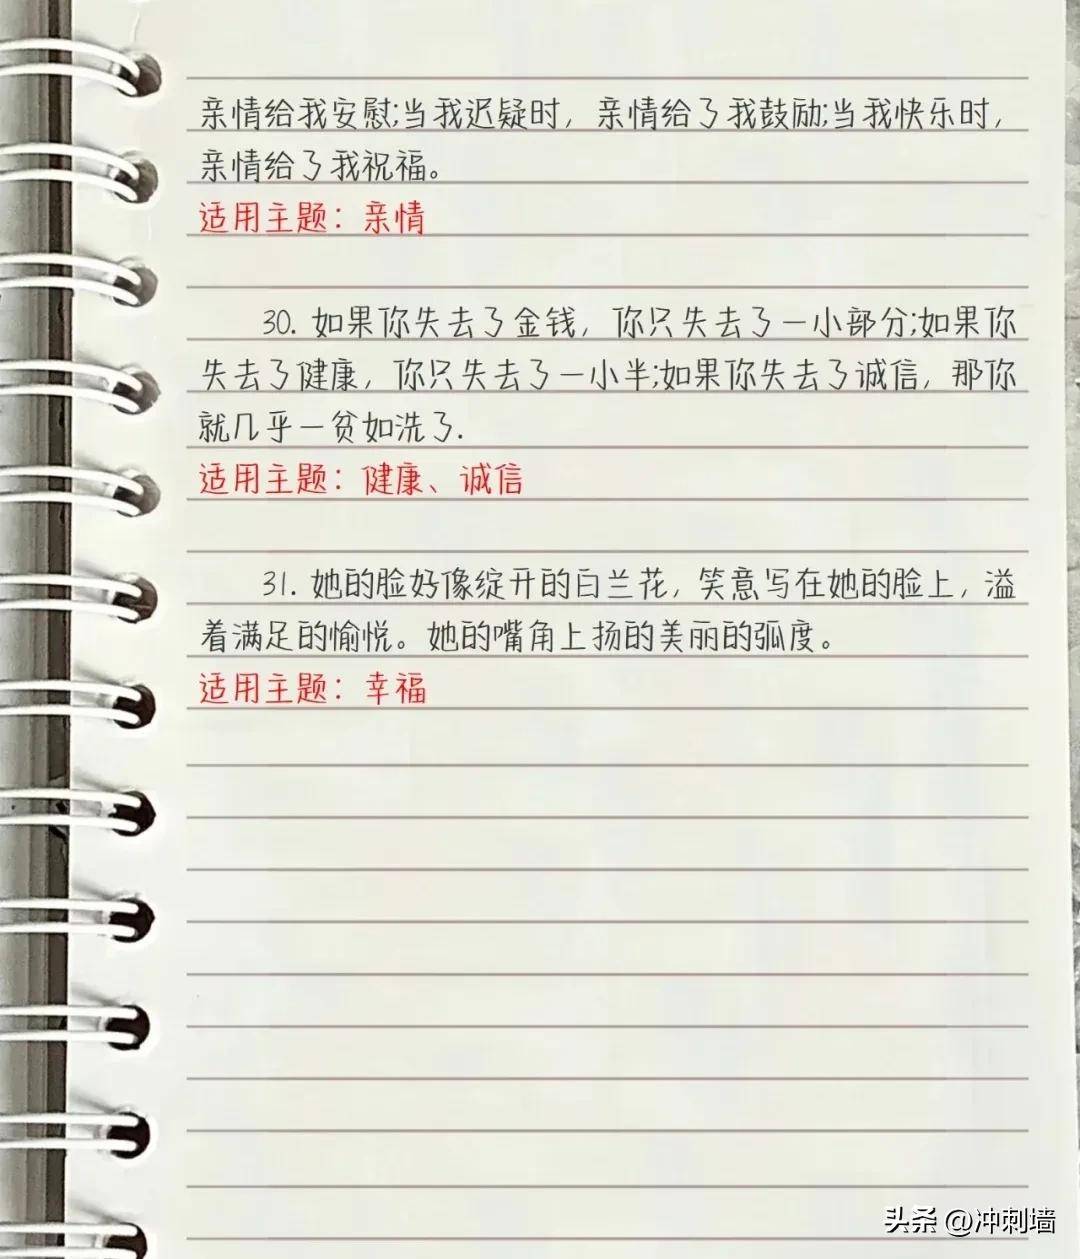 亲情给我安慰;当我迟疑时，亲情给了我鼓励;当我快乐时，
亲情给了我祝福。
适用主题：亲情
30. 如果你失去了金钱，你只失去了一小部分;如果你
失去了健康，你只失去了一小半;如果你失去了诚信，那你
就几乎一贫如洗了.
适用主题：健康、诚信
31. 她的脸好像绽开的白兰花，笑意写在她的脸上，溢
着满足的愉悦。她的嘴角上扬的美丽的弧度。
适用主题：幸福
头条 @冲刺墙